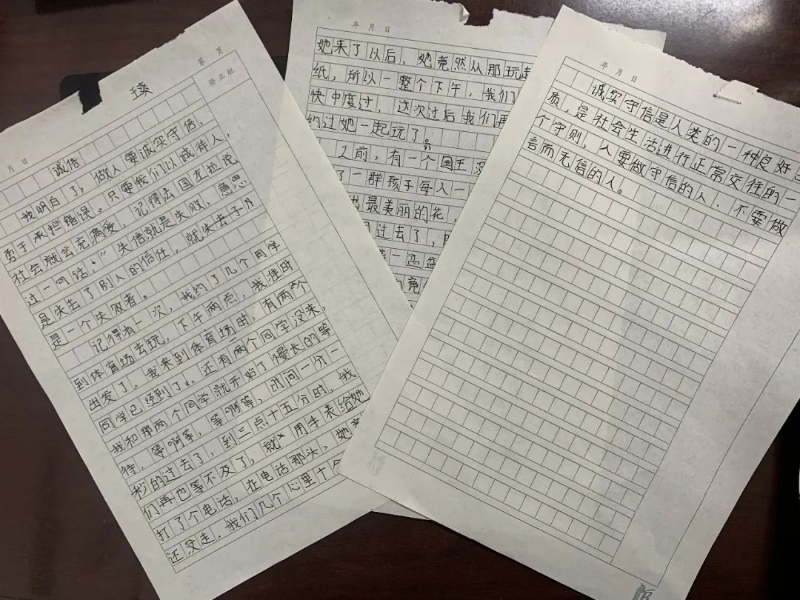 第 页
修正栏
月 日
诚信
我明白了，做人要诚实守信，
勇于承担错误。只要我们以诚待人，
社会就会充满爱，记得法国左拉说
过一句话：“失信就是失败，意思
是失去了别人的信任，就失去了
是一个失败者。
记得有一次，我约了几个同学
到体育场去玩，下午两点，我准时
出发了，我来到体育场时，有两个
同学已经到了，还有两个同学没来，
我和那两个同学就开始了漫长的等
待，等啊等，等啊等，时间一分一
秒的过去了，到三点十五分时，我
们再也等不及了，就用手表给她
打了个电话，在电话那头，她竟
还没走，我们几个心里十个
年 月 日
她来了以后，她竟然从那玩
纸，所以一整个下午，我们
快中度过，这次过后我们再
约过她一起玩了
前，有一个国王
了一群孩子每人一
最美丽的花
过去了，
年 月 日
诚实守信是人类的一种良好
质，是社会生活进行正常交往的一
个守则，人要做守信的人，不要做
言而无信的人。